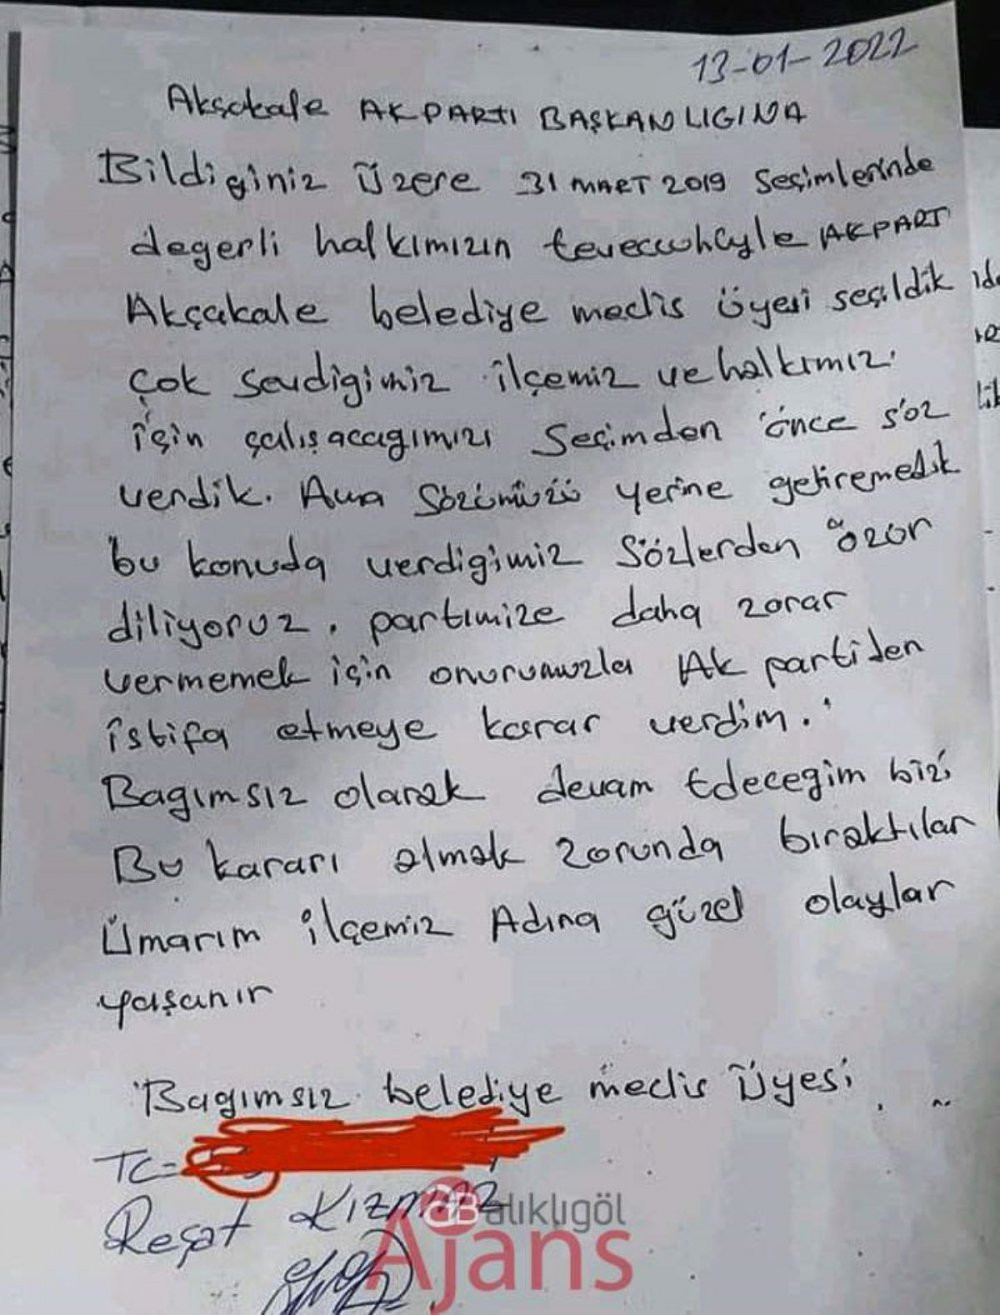 13-01-2022
Akçakale AKPARTI BAŞKANLIGINA
Bildiginiz Üzere 31 MART 2019 Seçimlerinde
degerli halkımızın teveccuhüyle AKPARTİ
Akçakale belediye meclis üyesi seçildik
Çok Sevdigimiz ilçemiz ve halkımız
için çalışacagımızı Seçimden önce söz
verdik. Ama Sözümüzü yerine getiremedik
bu konuda verdigimiz Sözlerden özür
diliyoruz. partimize daha zarar
vermemek için onurumuzla Ak partiden
istifa etmeye karar verdim.
Bagımsız olarak devam Edecegim bizi
Bu kararı almak zorunda bıraktılar
Umarım ilçemiz Adına güzel olaylar
yaşanır
Bagımsız belediye meclis Üyesi
TC=
Reşat KIZMAZ
Balıklıgöl
Ajans